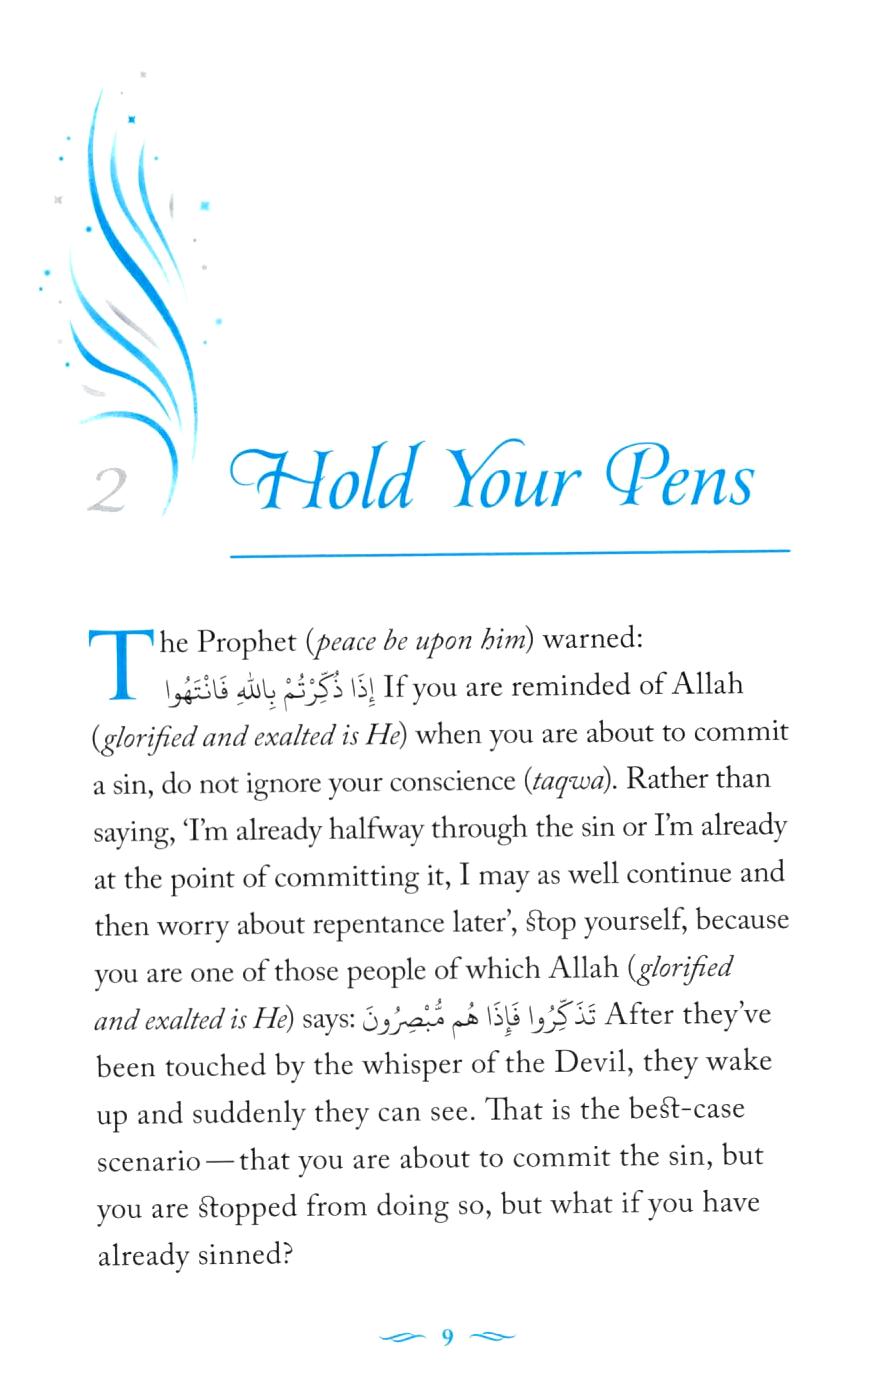 2 Hold Your Pens
The Prophet (peace be upon him) warned:
إِذَا ذُكِّرْتُمْ بِاللهِ فَانْتَهُوا If you are reminded of Allah
(glorified and exalted is He) when you are about to commit
a sin, do not ignore your conscience (taqwa). Rather than
saying, ‘I’m already halfway through the sin or I’m already
at the point of committing it, I may as well continue and
then worry about repentance later’, stop yourself, because
you are one of those people of which Allah (glorified
and exalted is He) says: تَذَكَّرُوا فَإِذَا هُم مُّبْصِرُونَ After they’ve
been touched by the whisper of the Devil, they wake
up and suddenly they can see. That is the best-case
scenario—that you are about to commit the sin, but
you are stopped from doing so, but what if you have
already sinned?
9